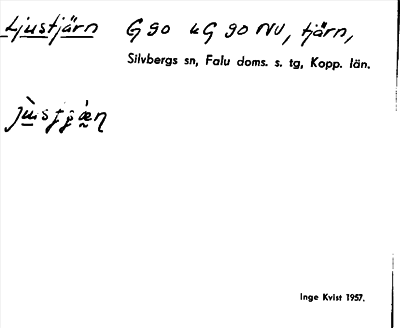 Ljustjärn G 90 uG 90 NV, tjärn,
Silvbergs sn, Falu doms. s. tg, Kopp. län.
Inge Kvist 1957.